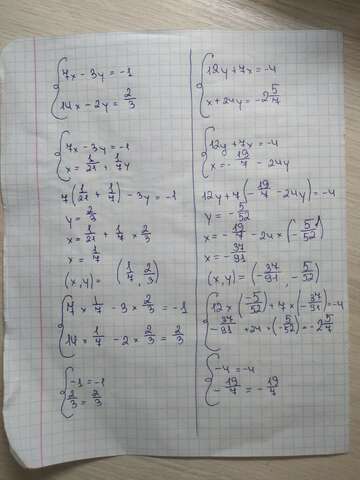 7x - 3y = -1
14x - 2y = 2/3
7x - 3y = -1
x = 1/21 + 1/7 y
7(1/21 + 1/7) - 3y = -1
y = 2/3
x = 1/21 + 1/7 × 2/3
x = 1/7
(x, y) = (1/7, 2/3)
7 × 1/7 - 3 × 2/3 = -1
14 × 1/7 - 2 × 2/3 = 2/3
-1 = -1
2/3 = 2/3
12y + 7x = -4
x + 24y = -2 5/7
12y + 7x = -4
x = -19/7 - 24y
12y + 7(-19/7 - 24y) = -4
y = -5/52
x = -19/7 - 24 × (-5/52)
x = -37/91
(x, y) = (-37/91, -5/52)
12 × (-5/52) + 7 × (-37/91) = -4
-37/91 + 24 × (5/-52) = -2 5/7
-4 = -4
-19/7 = -19/7